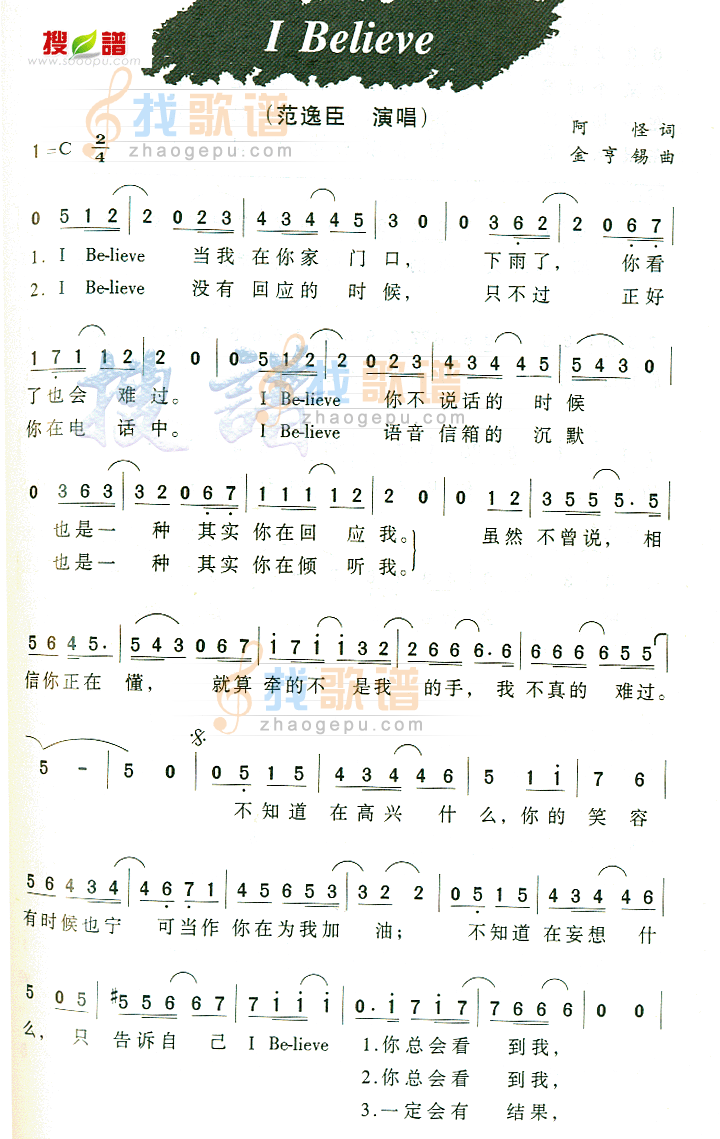 I Believe
搜谱
www.sooopu.com
(范逸臣 演唱)
找歌谱
zhaogepu.com
阿 怪 词
金 亨 锡 曲
1=C 2/4
0 5 1 2 | 2 0 2 3 | 4 3 4 4 5 | 3 0 | 0 3 6 2 | 2 0 6 7 |
1. I Be-lieve 当我 在你家 门 口， 下雨了， 你看
2. I Be-lieve 没有 回应的 时 候， 只不过 正好
1 7 1 1 2 | 2 0 | 0 5 1 2 | 2 0 2 3 | 4 3 4 4 5 | 5 4 3 0 |
搜譜
找歌谱
zhaogepu.com
了也会 难 过。 I Be-lieve 你不 说话的 时 候
你在电 话 中。 I Be-lieve 语音 信箱的 沉 默
0 3 6 3 | 3 2 0 6 7 | 1 1 1 1 2 | 2 0 | 0 1 2 | 3 5 5 5. 5 |
也是一 种 其实 你在回 应 我。 虽然 不曾说， 相
也是一 种 其实 你在倾 听 我。
5 6 4 5. | 5 4 3 0 6 7 | 1 7 1 1 3 2 | 2 6 6 6. 6 | 6 6 6 6 5 5 |
找歌谱
zhaogepu.com
信你正在 懂， 就算 牵的不 是我 的手， 我 不真的 难过。
5 - | 5 0 | 0 5 1 5 | 4 3 4 4 6 | 5 1 1 | 7 6 |
不知道 在高兴 什 么，你的 笑 容
5 6 4 3 4 | 4 6 7 1 | 4 5 6 5 3 | 3 2 2 | 0 5 1 5 | 4 3 4 4 6 |
有时候也宁 可当作 你在为我加 油； 不知道 在妄想 什
5 0 5 | #5 5 6 6 7 | 7 1 1 1 | 0. 1 7 1 | 7 6 6 6 | 0 0 |
么， 只 告诉自 己 I Be-lieve 1.你总会看 到我，
2.你总会看 到我，
3.一定会有 结果，